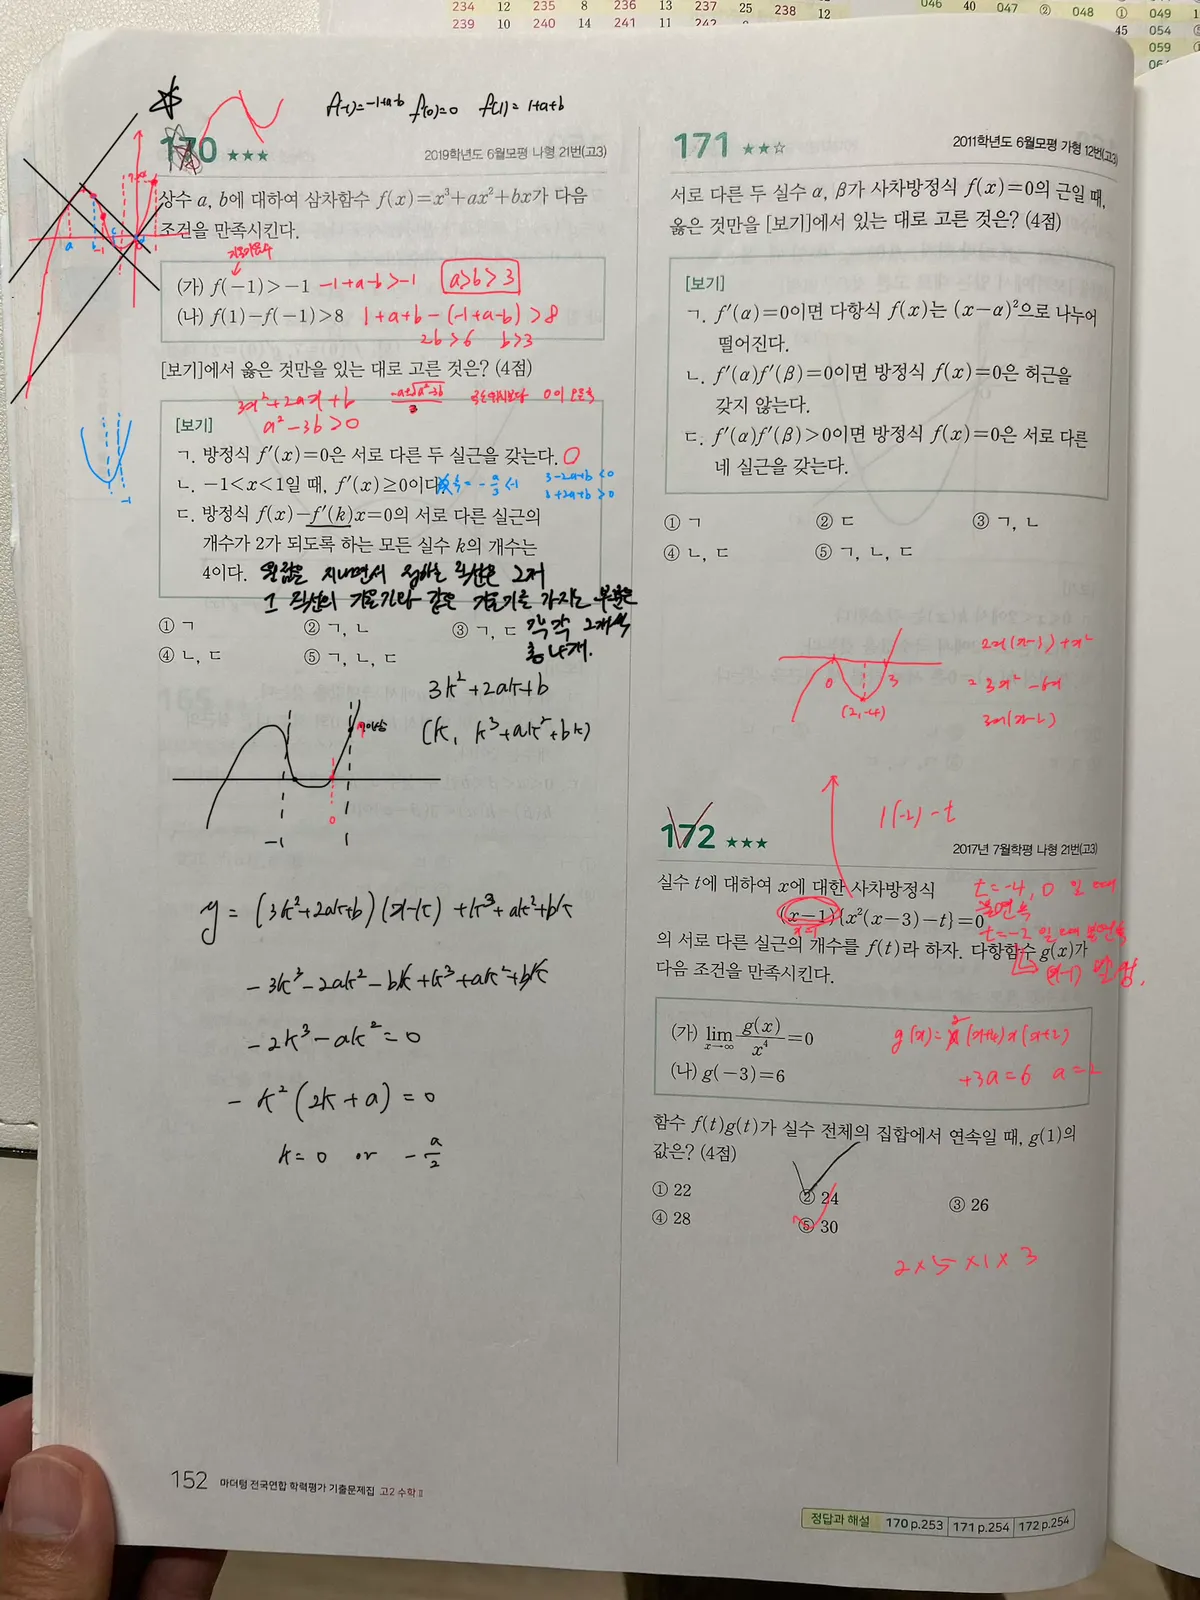 234 12 235 8 236 13 237 25 238 12
239 10 240 14 241 11 242
046 40 047 ② 048 ① 049
45 054
059
f(-1)=-1+a-b f(0)=0 f(1)=1+a+b
170 ★★★ 2019학년도 6월모평 나형 21번(고3)
상수 a, b에 대하여 삼차함수 f(x)=x³+ax²+bx가 다음
조건을 만족시킨다.
(가) f(-1)>-1 -1+a-b>-1 a>b>3
(나) f(1)-f(-1)>8 1+a+b-(-1+a-b)>8
2b>6 b>3
[보기]에서 옳은 것만을 있는 대로 고른 것은? (4점)
3x²+2ax+b
a²-3b>0
[보기]
ㄱ. 방정식 f'(x)=0은 서로 다른 두 실근을 갖는다. O
ㄴ. -1<x<1일 때, f'(x)≥0이다. 축=-a/3<-1 3-2a+b<0
3+2a+b>0
ㄷ. 방정식 f(x)-f'(k)x=0의 서로 다른 실근의
개수가 2가 되도록 하는 모든 실수 k의 개수는
4이다. 원점을 지나면서 접하는 직선은 2개
그 직선의 기울기와 같은 기울기를 가지는 부분은
각각 2개씩
총 4개.
① ㄱ ② ㄱ, ㄴ ③ ㄱ, ㄷ
④ ㄴ, ㄷ ⑤ ㄱ, ㄴ, ㄷ
3k²+2ak+b
(k, k³+ak²+bk)
-1 0 1
y=(3k²+2ak+b)(x-k)+k³+ak²+bk
-3k³-2ak²-bk+k³+ak²+bk
-2k³-ak²=0
-k²(2k+a)=0
k=0 or -a/2
152 마더텅 전국연합 학력평가 기출문제집 고2 수학Ⅱ
171 ★★☆ 2011학년도 6월모평 가형 12번(고3)
서로 다른 두 실수 α, β가 사차방정식 f(x)=0의 근일 때,
옳은 것만을 [보기]에서 있는 대로 고른 것은? (4점)
[보기]
ㄱ. f'(α)=0이면 다항식 f(x)는 (x-α)²으로 나누어
떨어진다.
ㄴ. f'(α)f'(β)=0이면 방정식 f(x)=0은 허근을
갖지 않는다.
ㄷ. f'(α)f'(β)>0이면 방정식 f(x)=0은 서로 다른
네 실근을 갖는다.
① ㄱ ② ㄷ ③ ㄱ, ㄴ
④ ㄴ, ㄷ ⑤ ㄱ, ㄴ, ㄷ
2x(x-3)+x²
0 3 = 3x²-6x
(2,-4) 3x(x-2)
1(-2)-t
172 ★★★ 2017년 7월학평 나형 21번(고3)
실수 t에 대하여 x에 대한 사차방정식
(x-1){x²(x-3)-t}=0
의 서로 다른 실근의 개수를 f(t)라 하자. 다항함수 g(x)가
다음 조건을 만족시킨다.
t=-4, 0 일 때
불연속
t=-2 일 때 불연속
(가) lim x→∞ g(x)/x⁴=0 g(x)=2(x+4)x(x+2)
(나) g(-3)=6 +3a=6 a=2
함수 f(t)g(t)가 실수 전체의 집합에서 연속일 때, g(1)의
값은? (4점)
① 22 ② 24 ③ 26
④ 28 ⑤ 30
2×5×1×3
정답과 해설 170 p.253 171 p.254 172 p.254